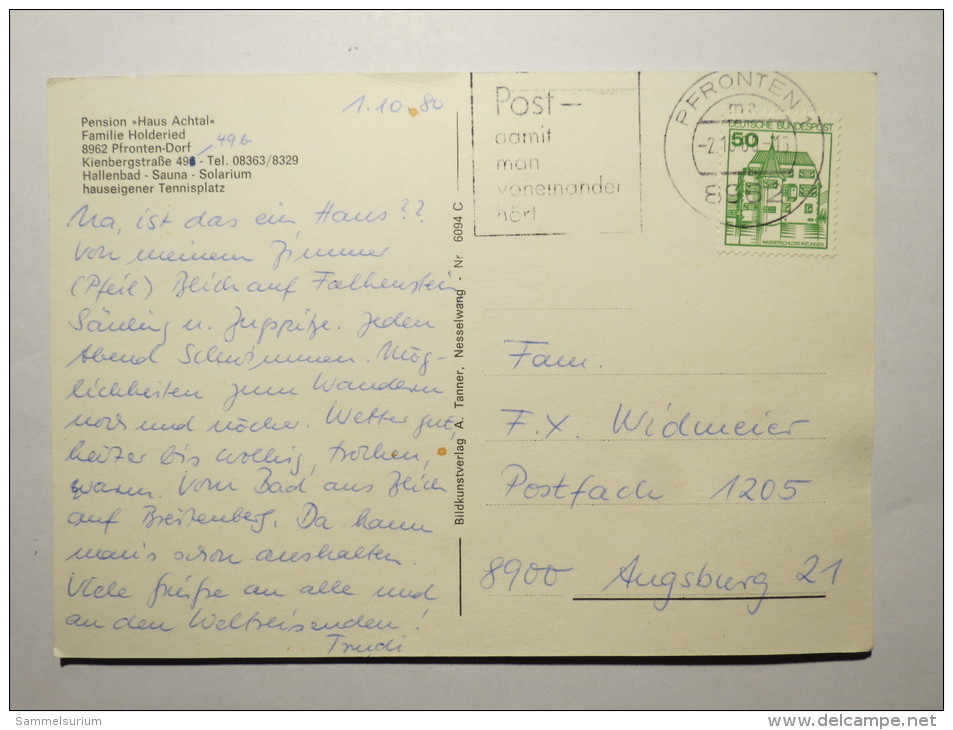 1.10.80
Pension »Haus Achtal«
Familie Holderied
8962 Pfronten-Dorf
49b
Kienbergstraße 49 - Tel. 08363/8329
Hallenbad - Sauna - Solarium
hauseigener Tennisplatz
Na, ist das ein Haus??
Von meinem Zimmer
(Pfeil) Blick auf Falkenstein
Säuling u. Zugspitze. Jeden
Abend Schwimmen. Mög-
lichkeiten zum Wandern
noch und nöcher. Wetter gut,
heiter bis wolkig, trocken,
warm. Vom Bad aus Blick
auf Breitenberg. Da kann
man's schon aushalten.
Viele Grüße an alle und
an den Weltreisenden!
Trudi
Bildkunstverlag A. Tanner, Nesselwang - Nr. 6094 C
Post-
damit
man
voneinander
hört
PFRONTEN 1
ma
8962
DEUTSCHE BUNDESPOST
50
WASSERSCHLOSS INZLINGEN
Fam.
F.X. Widmeier
Postfach 1205
8900 Augsburg 21
Sammelsurium
delcampe.net